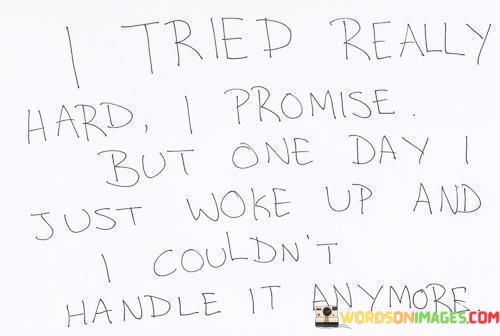 I TRIED REALLY
HARD, I PROMISE.
BUT ONE DAY I
JUST WOKE UP AND
I COULDN'T
HANDLE IT ANYMORE
WORDSONIMAGES.COM